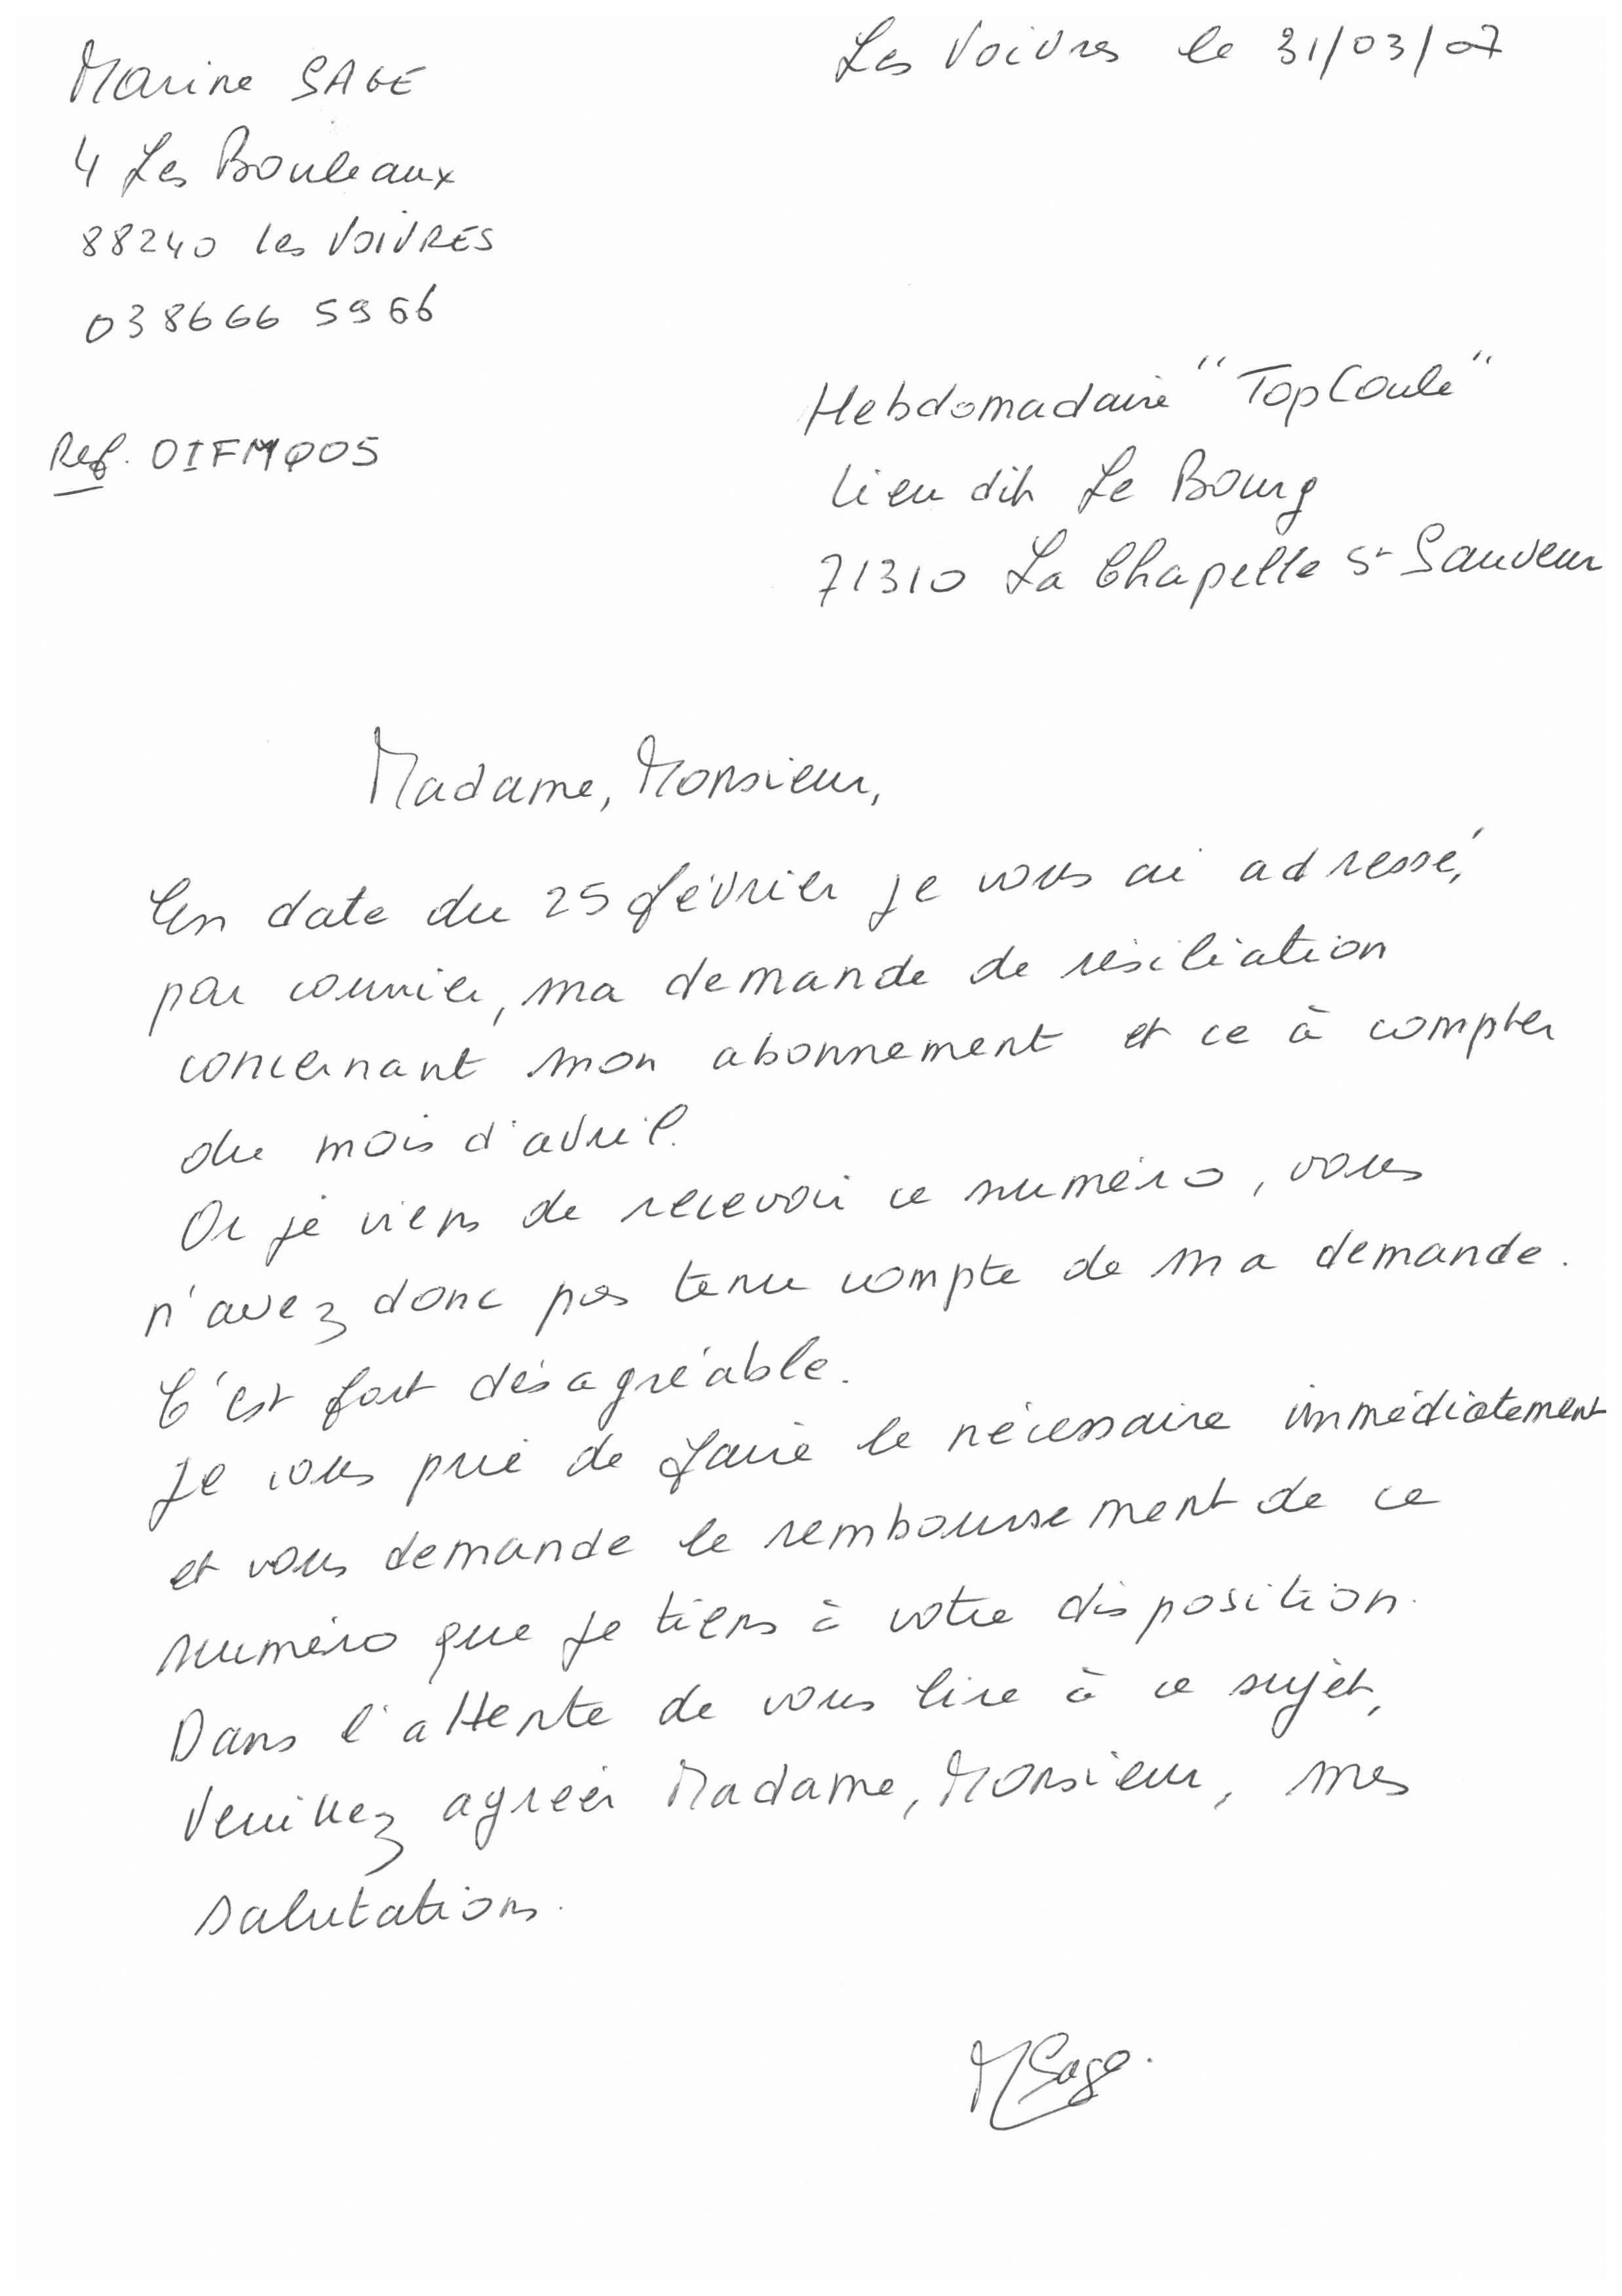 Marine SAGE
Les Voivres le 31/03/07
4 Les Bouleaux
88240 les VOIVRES
038666 5966
Hebdomadaire "TopCoule"
Ref. OIFMQ05
lieu dit Le Bourg
71310 La Chapelle St Sauveur
Madame, Monsieur,
En date du 25 février je vous ai adressé,
par courrier, ma demande de résiliation
concernant mon abonnement et ce à compter
du mois d'avril.
Or je viens de recevoir ce numéro, vous
n'avez donc pas tenu compte de ma demande.
C'est fort désagréable.
Je vous prie de faire le nécessaire immédiatement
et vous demande le remboursement de ce
numéro que je tiens à votre disposition.
Dans l'attente de vous lire à ce sujet,
Veuillez agréer Madame, Monsieur, mes
salutations.
MSage.